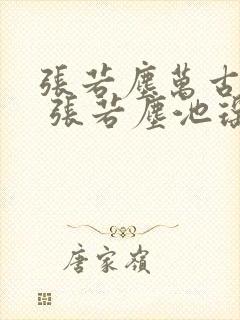 張若塵萬古
張若塵池
唐家嶺